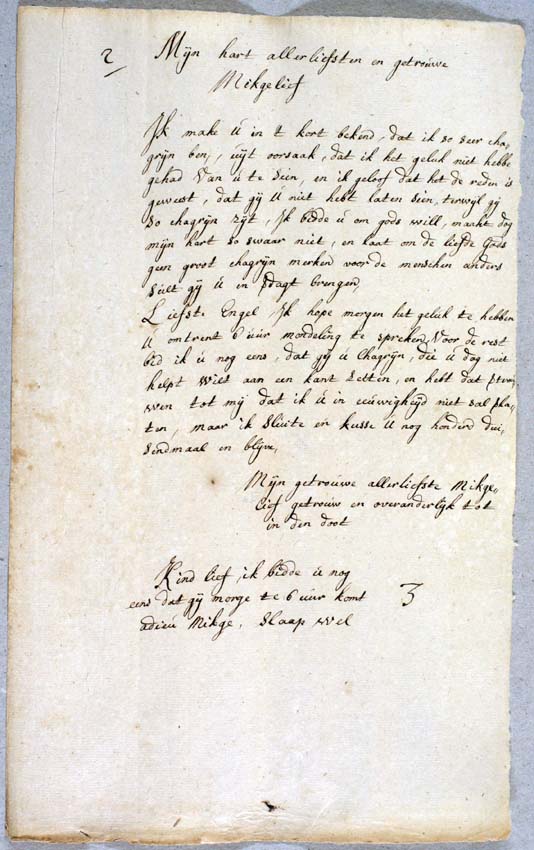 2
Mijn hart allerliefsten en getrouwe
Mikgelief
Ik make U in t kort bekend, dat ik so seer cha,
grijn ben, uijt oorsaak, dat ik het geluk niet hebbe
gehad Van u te Sein, en ik geloof dat het de reden is
geweest, dat gij U niet hebt laten sien, terwijl gij
so chagrijn zijt, Ik bidde u om gods will, maakt dog
mijn hart so swaar niet, en laat om de liefde Gods
geen groot chagrijn merken voor de menschen anders
Sult gij U in Klagt brengen,
Liefste Engel, Ik hope morgen het geluk te hebben
U omtrent 6 uur mondeling te spreken, Voor de rest
bid ik U nog eens, dat gij U Chagrijn, die U dog niet
helpt Wilt aan een kant Setten, en hebt dat ver,
wen tot mij dat ik U in eeuwigheijd niet sal ,
ten, maar ik Sluite en kusse U nog honderd dui,
sendmaal en blijve,
Mijn getrouwe allerliefste Mikge,
lief getrouw en overanderlijk tot
in den doot
Kind lief, ik bidde u nog
eens dat gij morge te 6 uur komt
adieu Mikge, Slaap wel
3